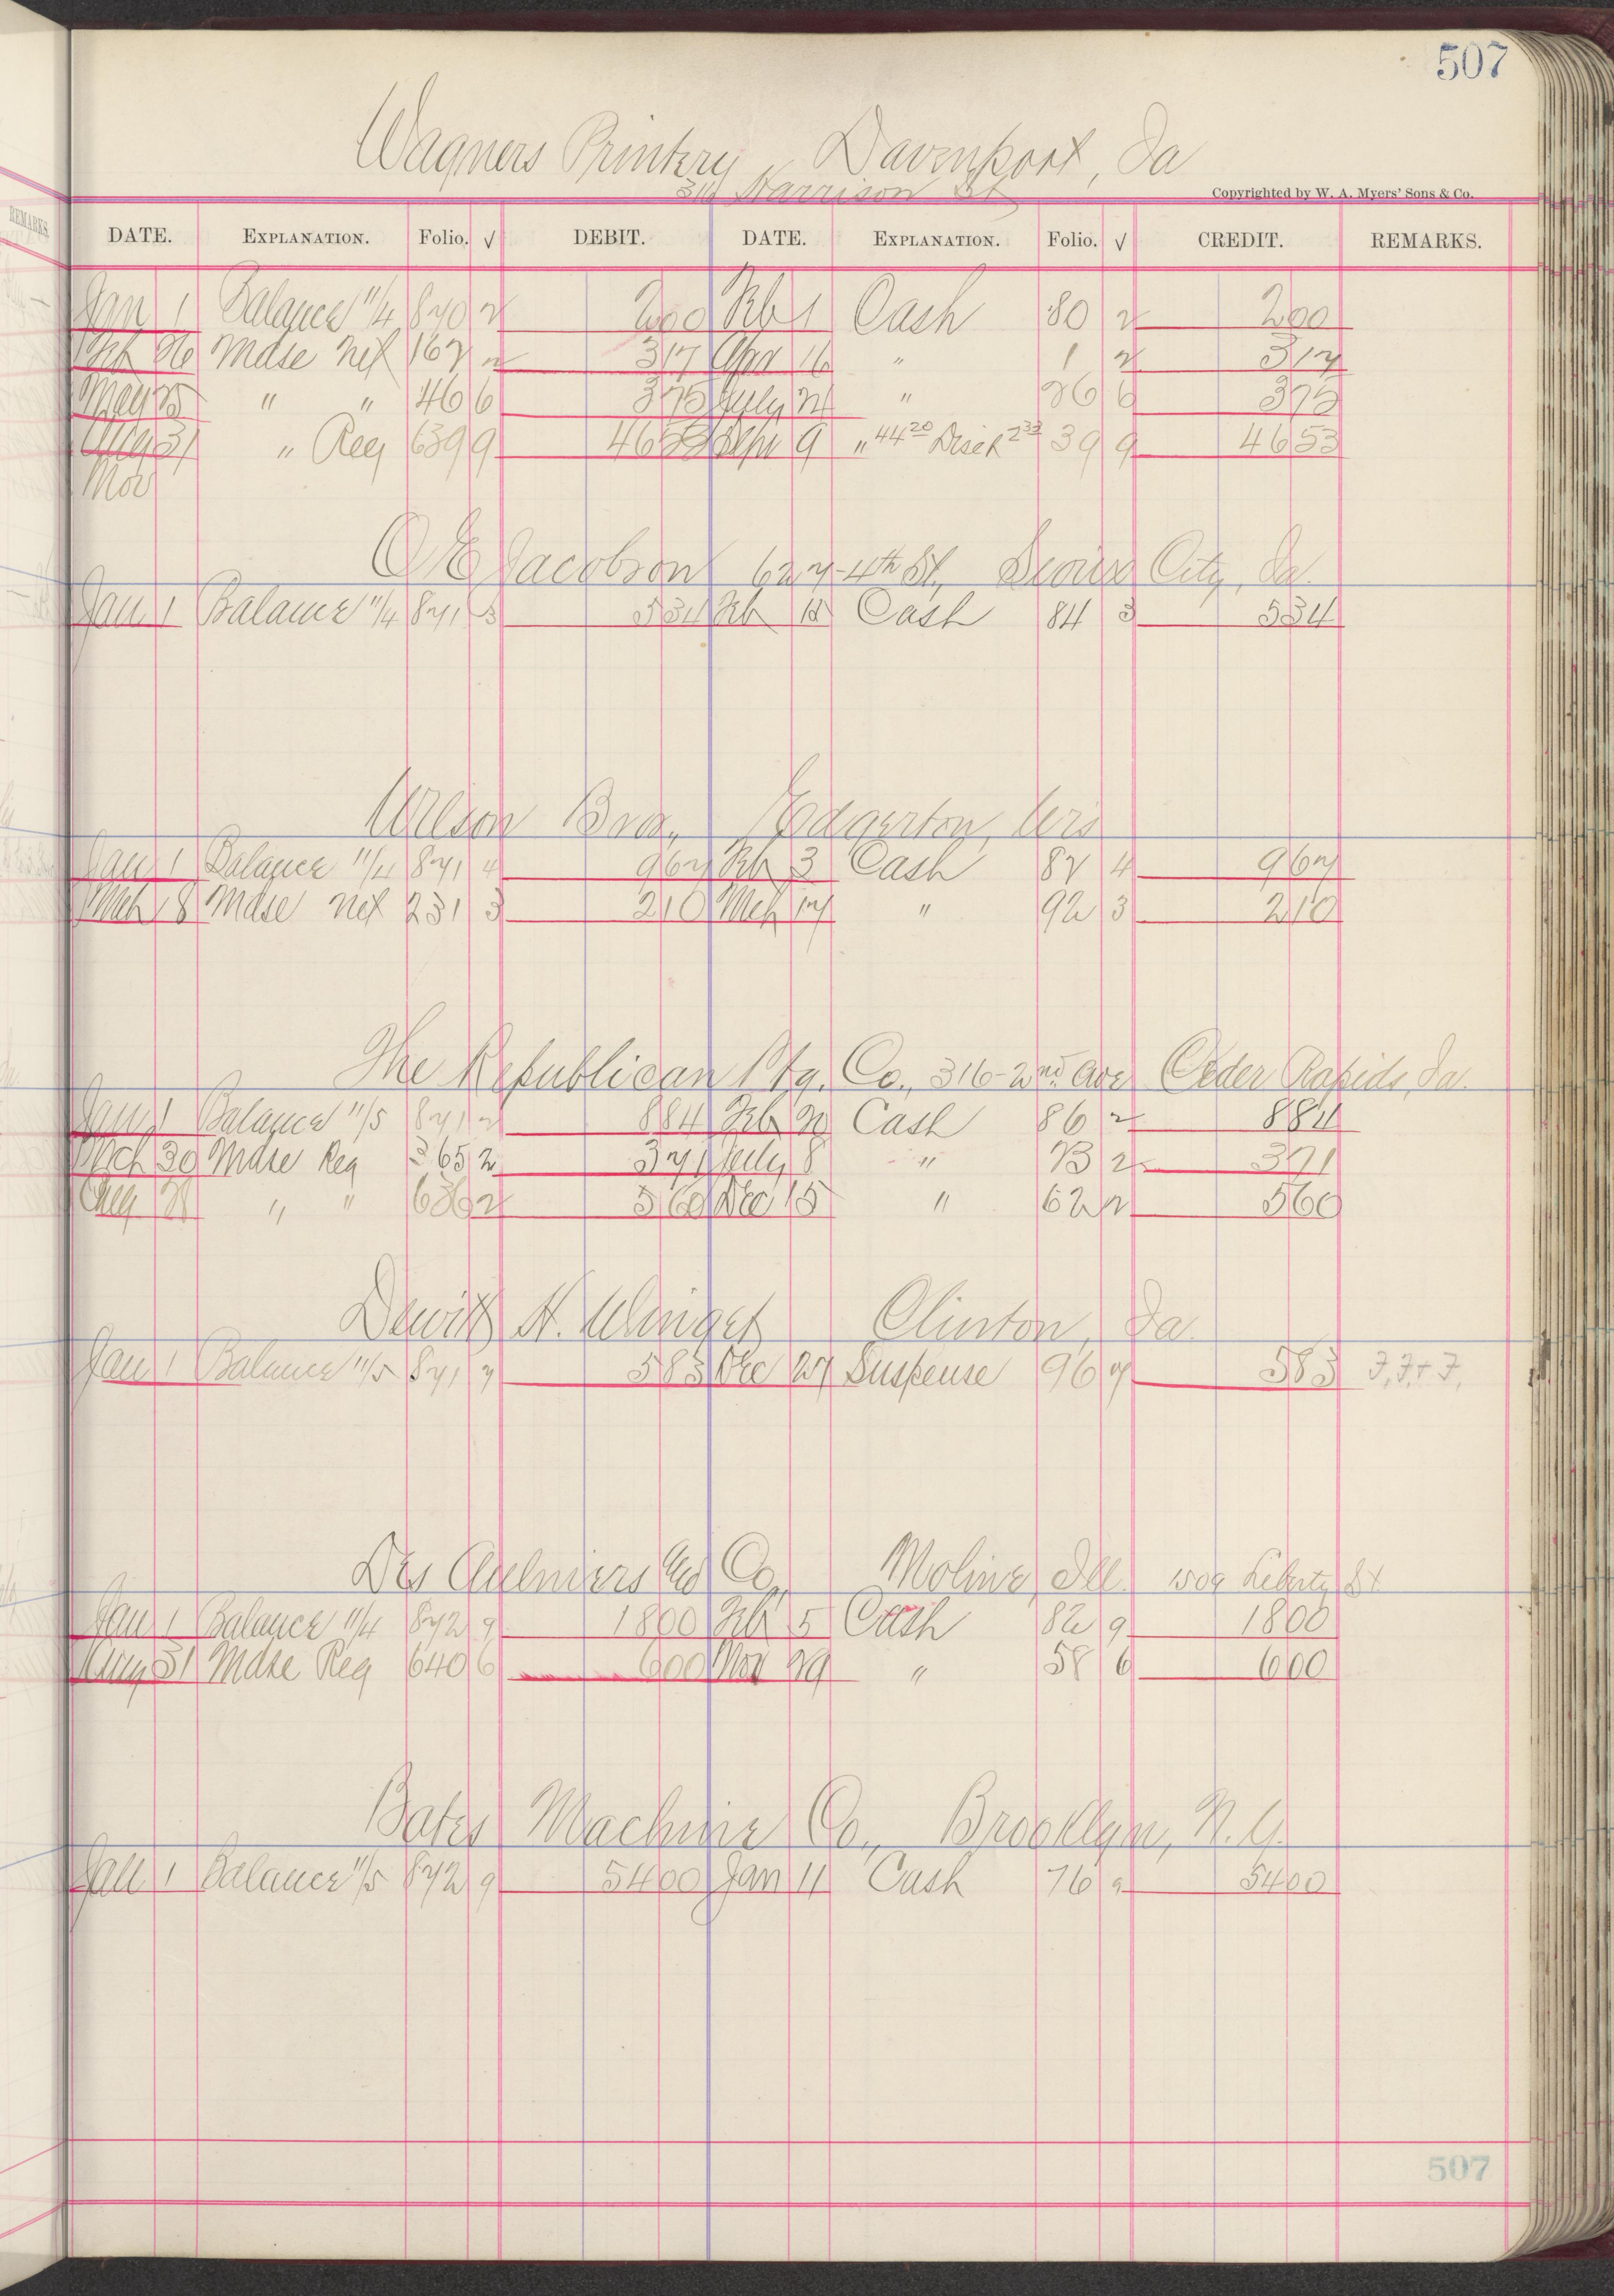 507
Wagners Printery, Davenport, Ia
Harrison St
Copyrighted by W. A. Myers' Sons & Co.
REMARKS.
DATE. EXPLANATION. Folio. √ DEBIT. DATE. EXPLANATION. Folio. √ CREDIT. REMARKS.
Jan 1 Balance 11/4 870 2 200 Feb 1 Cash 80 2 200
Feb 26 Mdse Net 167 2 317 Apr 16 " 1 2 317
May 25 " " 466 375 July 21 " 26 6 375
Aug 31 " Reg 639 9 4653 Sep 9 " 44 20 Disct 2 33 39 9 4653
Nov
O E Jacobson 627-4th St, Sioux City, Ia.
Jan 1 Balance 11/4 871 3 534 Feb 15 Cash 84 3 534
Wilson Bros., Edgerton, Wis
Jan 1 Balance 11/4 871 4 967 Feb 3 Cash 81 4 967
Mch 18 Mdse Net 231 3 210 Mch 17 " 92 3 210
The Republican Ptg. Co., 316-2nd Ave Ceder Rapids, Ia.
Jan 1 Balance 11/5 871 2 884 Feb 20 Cash 86 2 884
Mch 30 Mdse Reg 365 2 371 July 8 " 23 2 371
Aug 31 " " 636 2 560 Dec 15 " 62 2 560
Dewitt H. Winget Clinton, Ia.
Jan 1 Balance 11/5 871 7 583 Dec 27 Suspense 96 7 583 F, F, + F,
Des Aulniers & Co, Moline, Ill. 1509 Liberty St
Jan 1 Balance 11/4 872 9 1800 Feb 5 Cash 82 9 1800
Aug 31 Mdse Reg 640 6 600 Nov 29 " 58 6 600
Bates Machine Co., Brooklyn, N.Y.
Jan 1 Balance 11/5 872 9 5400 Jan 11 Cash 76 9 5400
507